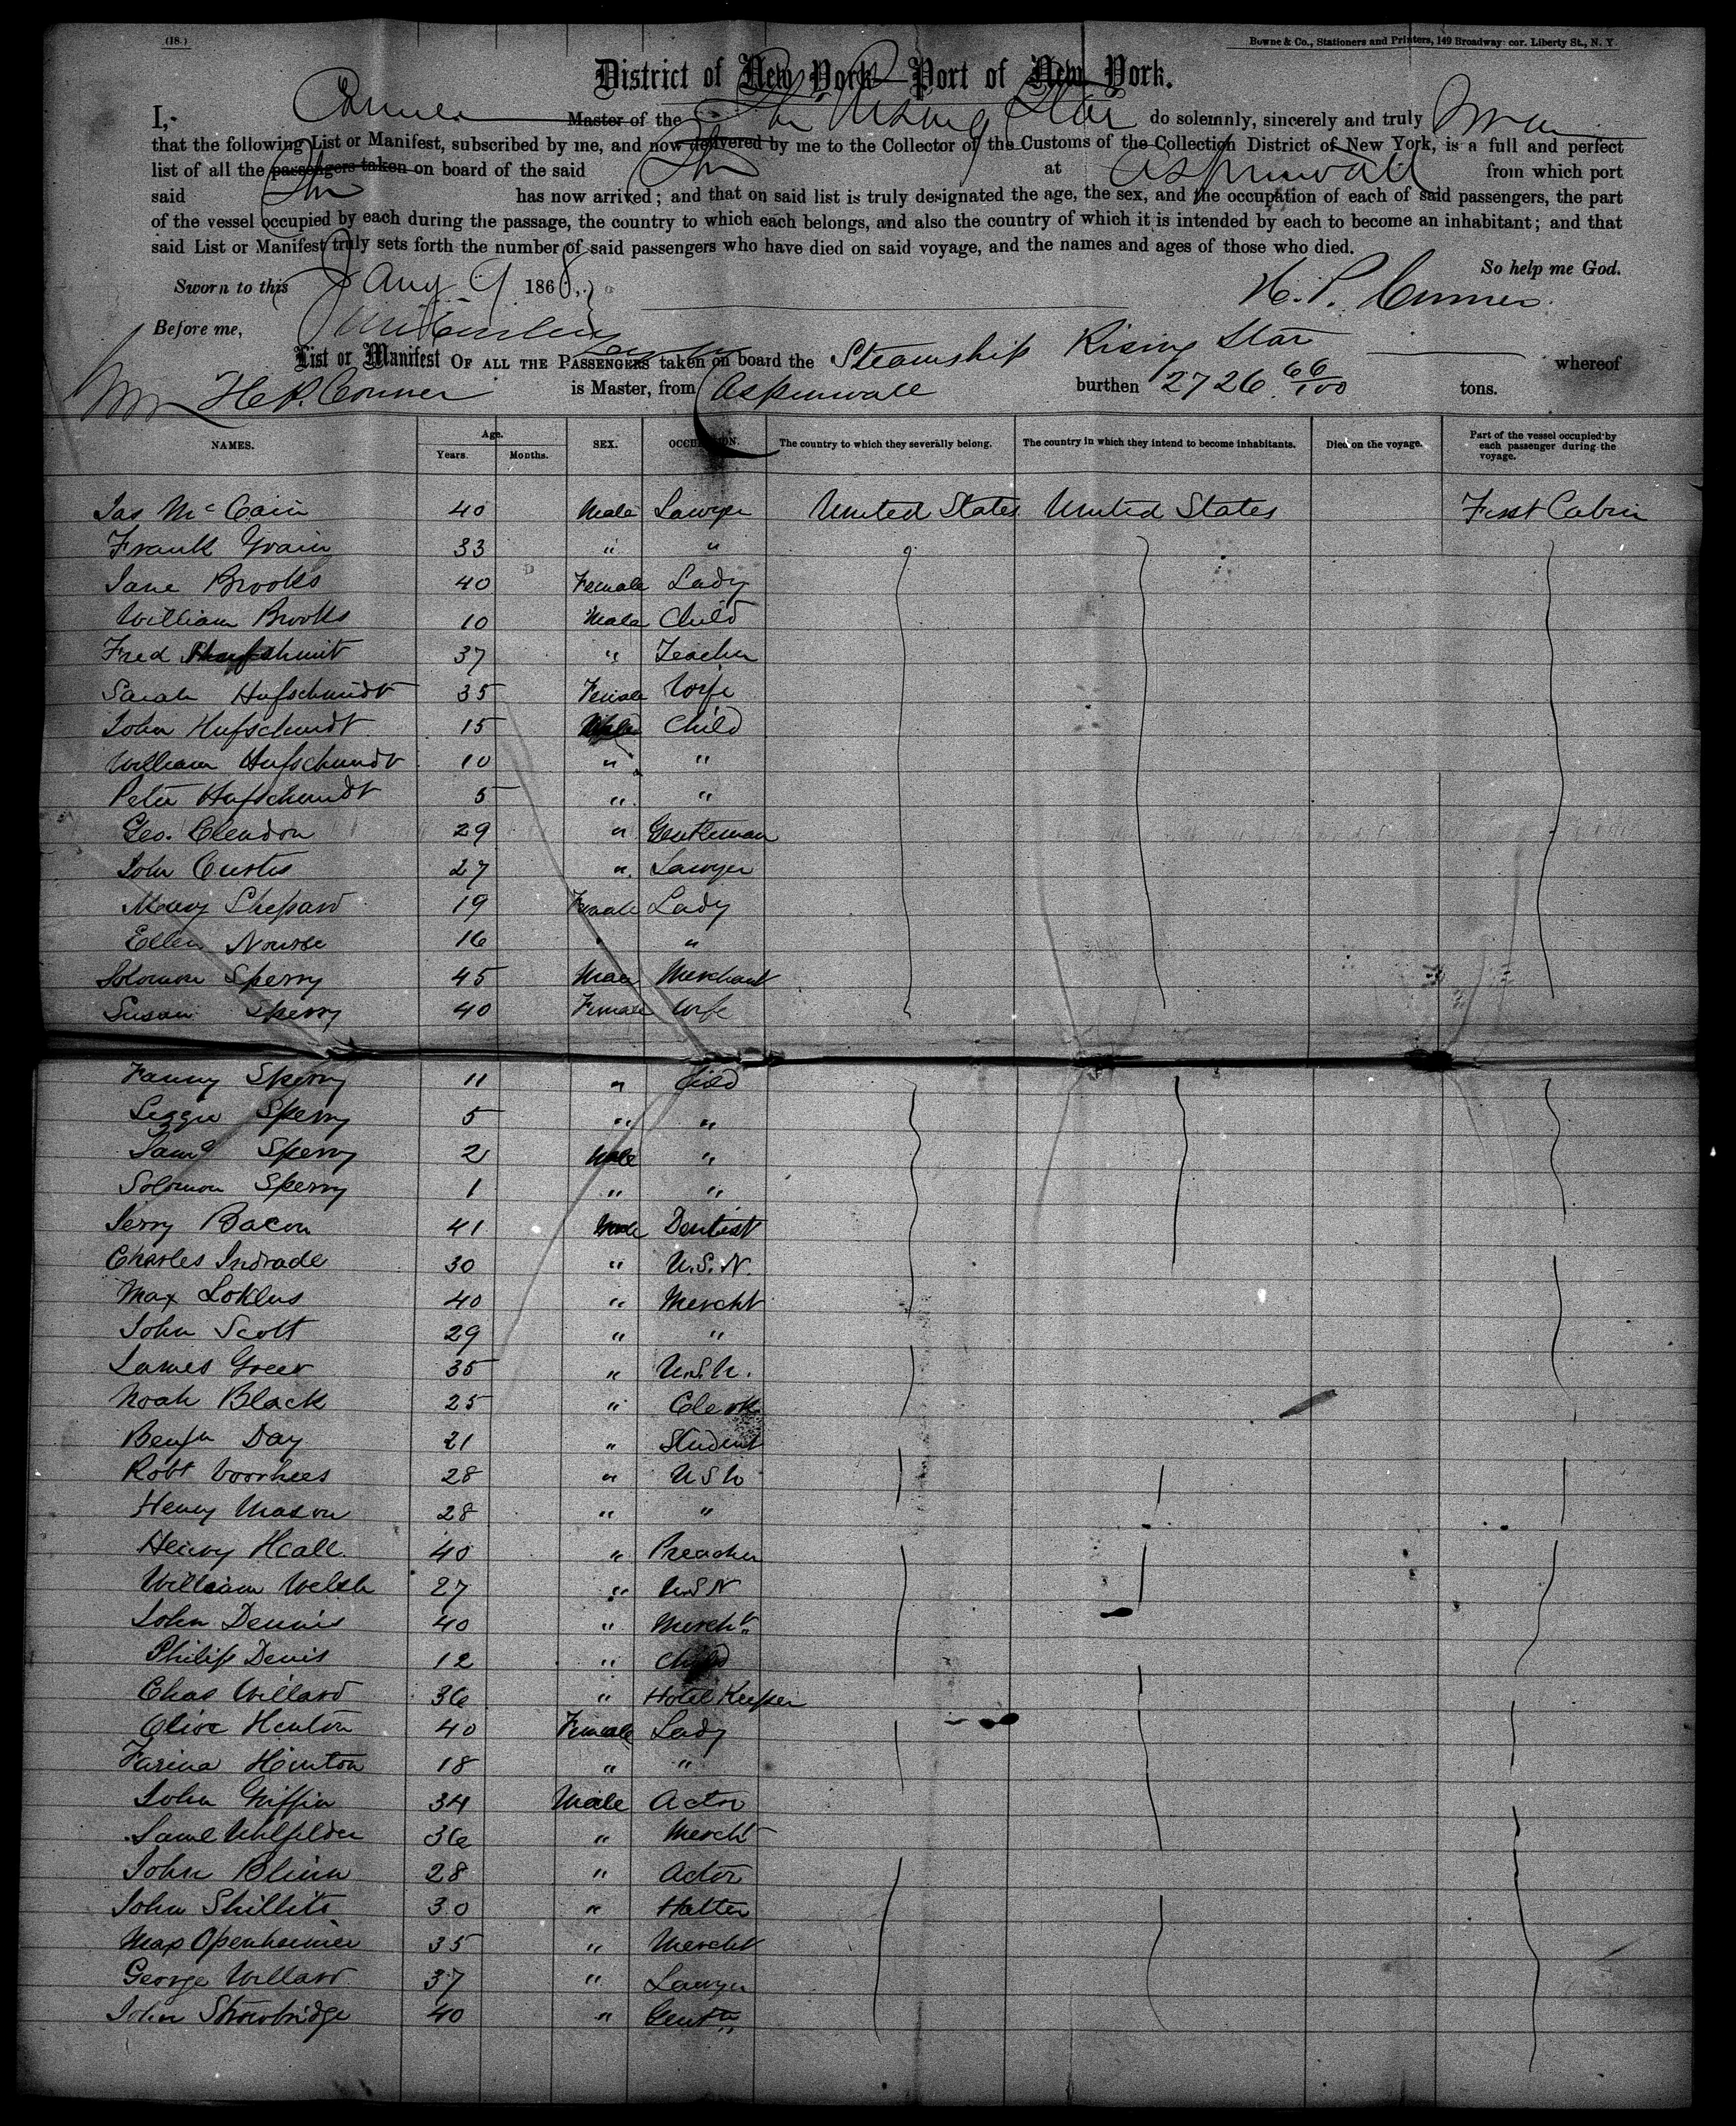 (18.)
Bowne & Co., Stationers and Printers, 149 Broadway cor. Liberty St., N. Y.
District of New York Port of New York.
I, Conner Master of the Str Rising Star do solemnly, sincerely and truly
that the following List or Manifest, subscribed by me, and now delivered by me to the Collector of the Customs of the Collection District of New York, is a full and perfect
list of all the passengers taken on board of the said Str at Aspinwall from which port
said Str has now arrived; and that on said list is truly designated the age, the sex, and the occupation of each of said passengers, the part
of the vessel occupied by each during the passage, the country to which each belongs, and also the country of which it is intended by each to become an inhabitant; and that
said List or Manifest truly sets forth the number of said passengers who have died on said voyage, and the names and ages of those who died.
So help me God.
Sworn to this Jany 9 1868, H. P. Conner
Before me,
List or Manifest OF ALL THE PASSENGERS taken on board the Steamship Rising Star whereof
H. P. Conner is Master, from Aspinwall burthen 2726 66/100 tons.
NAMES. Age. Years. Months. SEX. OCCUPATION. The country to which they severally belong. The country in which they intend to become inhabitants. Died on the voyage. Part of the vessel occupied by each passenger during the voyage.
Jas McCain 40 Male Lawyer United States United States First Cabin
Frank Grain 33 " "
Jane Brooks 40 Female Lady
William Brooks 10 Male Child
Fred 37 " Teacher
Sarah Hufschmidt 35 Female Wife
John Hufschmidt 15 Male Child
William Hufschmidt 10 " "
Peter Hufschmidt 5 " "
Geo. Clendon 29 " Gentleman
John Curtis 27 " Lawyer
Mary Shepard 19 Female Lady
Ellen Nourse 16 " "
Solomon Sperry 45 Male Merchant
Susan Sperry 40 Female Wife
Fanny Sperry 11 " Child
Lizzie Sperry 5 " "
Saml Sperry 2 Male "
Solomon Sperry 1 " "
Jerry Bacon 41 Male Dentist
Charles Indrade 30 " U.S.N.
Max 40 " Mercht
John Scott 29 " "
James Greer 35 " U.S.N.
Noah Black 25 " Clerk
Benjn Day 21 " Student
Robt Voorhees 28 " USN
Henry Mason 28 " "
Henry Hall 40 " Preacher
William Welsh 27 " USN
John Dennis 40 " Mercht
Philip Denis 12 " Child
Chas Willard 36 " Hotel Keeper
Olive Henton 40 Female Lady
Farina Hinton 18 " "
John Griffin 34 Male Actor
Saml Uhlfelder 36 " Mercht
John Blinn 28 " Actor
John Shillito 30 " Hatter
Max Openheimer 35 " Mercht
George Willard 37 " Lawyer
John Strowbridge 40 " Gentn